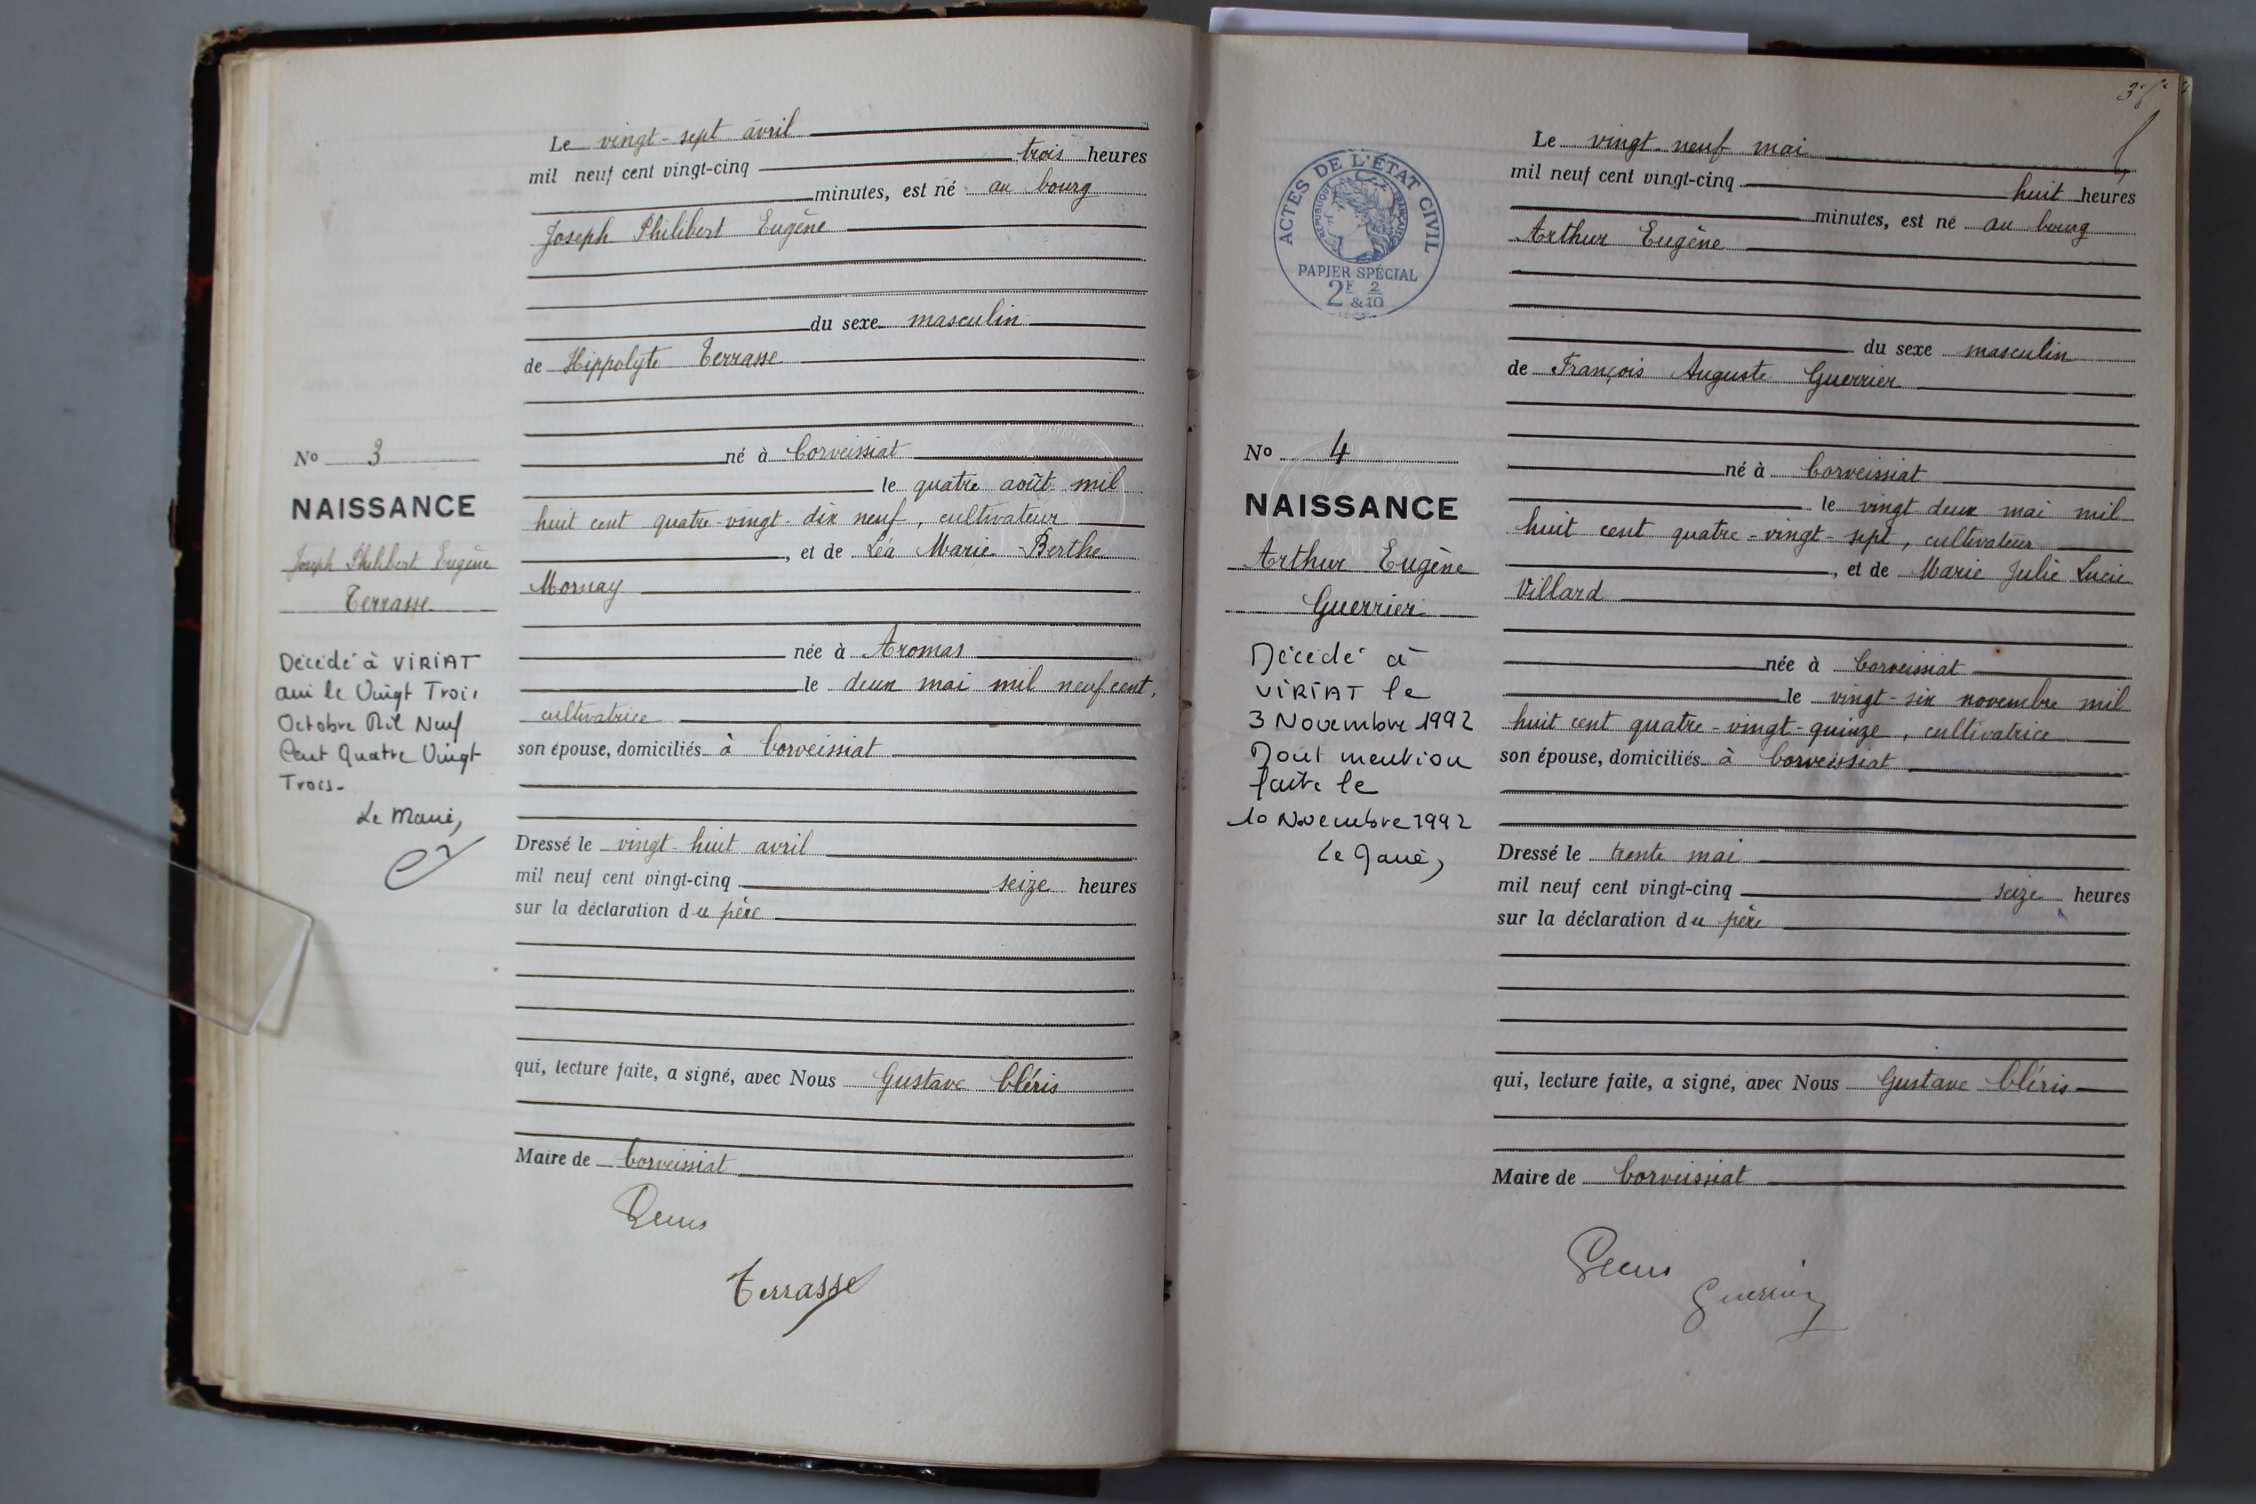 Le vingt-sept avril
mil neuf cent vingt-cinq trois heures
minutes, est né au bourg
Joseph Philibert Eugène
du sexe masculin
de Hippolyte Terrasse
né à Corveissiat
le quatre août mil
huit cent quatre-vingt-dix neuf, cultivateur
, et de Léa Marie Berthe
Mornay
née à Aromas
le deux mai mil neuf cent,
cultivatrice
son épouse, domiciliés à Corveissiat
Dressé le vingt-huit avril
mil neuf cent vingt-cinq seize heures
sur la déclaration du père
qui, lecture faite, a signé, avec Nous Gustave Cléris
Maire de Corveissiat
Terrasse
No 3
NAISSANCE
Joseph Philibert Eugène
Terrasse
Décédé à VIRIAT
Ain le Vingt Trois
Octobre Mil Neuf
Cent Quatre Vingt
Trois-
Le Maire,
ACTES DE L'ÉTAT CIVIL
RÉPUBLIQUE FRANÇAISE
PAPIER SPÉCIAL
2F & 2/10
Le vingt-neuf mai
mil neuf cent vingt-cinq huit heures
minutes, est né au bourg
Arthur Eugène
du sexe masculin
de François Auguste Guerrier
né à Corveissiat
le vingt deux mai mil
huit cent quatre-vingt-sept, cultivateur
, et de Marie Julie Lucie
Villard
née à Corveissiat
le vingt-six novembre mil
huit cent quatre-vingt-quinze, cultivatrice
son épouse, domiciliés à Corveissiat
Dressé le trente mai
mil neuf cent vingt-cinq seize heures
sur la déclaration du père
qui, lecture faite, a signé, avec Nous Gustave Cléris
Maire de Corveissiat
Guerrier
No 4
NAISSANCE
Arthur Eugène
Guerrier
Décédé à
VIRIAT le
3 Novembre 1992
Dont mention
faite le
10 Novembre 1992
Le Maire,